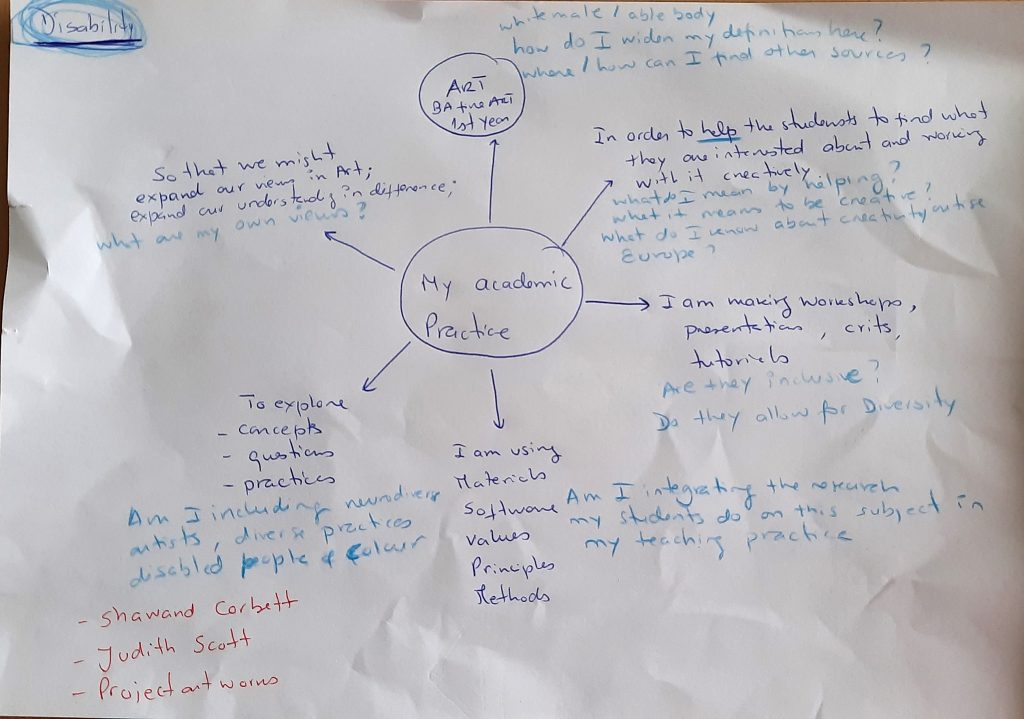 Disability
white male / able body
how do I widen my definition here?
where / how can I find other sources?
ART
BA fine ART
1st Year
In order to help the students to find what
they are interested about and working
with it creatively
what do I mean by helping?
what it means to be creative?
what do I know about creativity outise
Europe?
So that we might
expand our views in Art;
expand our understandg in difference;
what are my own views?
My academic
Practice
I am making workshops,
presentations, crits,
tutorials
Are they inclusive?
Do they allow for Diversity
To explore
- concepts
- questions
- practices
Am I including neurodiverse
artists, diverse practices
disabled people of colour
- Shawand Corbett
- Judith Scott
- Project art works
I am using
Materials
Software
values
Principles
Methods
Am I integrating the research
my students do on this subject in
my teaching practice